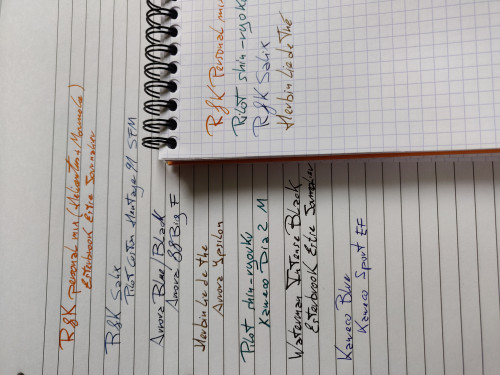 R&K Personal mix
Pilot shin-ryoku
R&K Salix
Herbin Lie de Thé
R&K personal mix
Esterbrook Estie Journaler
R&K Salix
Pilot Custom Heritage 91 SFM
Aurora Blue/Black
Aurora 88 Big F
Herbin Lie de Thé
Aurora Ipsilon
Pilot shin-ryoku
Kaweco Dia 2 M
Waterman Intense Black
Esterbrook Estie Journaler
Kaweco Blue
Kaweco Sport EF